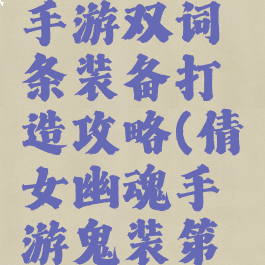 手游双词
条装备打
造攻略(倩
女幽魂手
游鬼装第